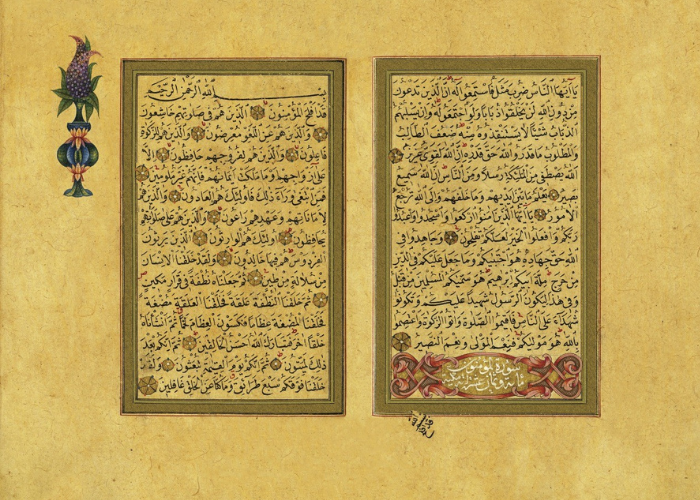 يَا اَيُّهَا النَّاسُ ضُرِبَ مَثَلٌ فَاسْتَمِعُوا لَهُ اِنَّ الَّذِينَ تَدْعُونَ
مِنْ دُونِ اللّٰهِ لَنْ يَخْلُقُوا ذُبَابًا وَلَوِ اجْتَمَعُوا لَهُ وَاِنْ يَسْلُبْهُمُ
الذُّبَابُ شَيْئًا لَا يَسْتَنْقِذُوهُ مِنْهُ ضَعُفَ الطَّالِبُ
وَالْمَطْلُوبُ مَا قَدَرُوا اللّٰهَ حَقَّ قَدْرِهِ اِنَّ اللّٰهَ لَقَوِيٌّ عَزِيزٌ
اَللّٰهُ يَصْطَفِي مِنَ الْمَلٰئِكَةِ رُسُلًا وَمِنَ النَّاسِ اِنَّ اللّٰهَ سَمِيعٌ
بَصِيرٌ يَعْلَمُ مَا بَيْنَ اَيْدِيهِمْ وَمَا خَلْفَهُمْ وَاِلَى اللّٰهِ تُرْجَعُ
الْاُمُورُ يَا اَيُّهَا الَّذِينَ اٰمَنُوا ارْكَعُوا وَاسْجُدُوا وَاعْبُدُوا
رَبَّكُمْ وَافْعَلُوا الْخَيْرَ لَعَلَّكُمْ تُفْلِحُونَ وَجَاهِدُوا فِي
اللّٰهِ حَقَّ جِهَادِهِ هُوَ اجْتَبٰيكُمْ وَمَا جَعَلَ عَلَيْكُمْ فِي الدِّينِ
مِنْ حَرَجٍ مِلَّةَ اَبِيكُمْ اِبْرٰهِيمَ هُوَ سَمّٰيكُمُ الْمُسْلِمِينَ مِنْ قَبْلُ
وَفِي هٰذَا لِيَكُونَ الرَّسُولُ شَهِيدًا عَلَيْكُمْ وَتَكُونُوا
شُهَدَاءَ عَلَى النَّاسِ فَاَقِيمُوا الصَّلٰوةَ وَاٰتُوا الزَّكٰوةَ وَاعْتَصِمُوا
بِاللّٰهِ هُوَ مَوْلٰيكُمْ فَنِعْمَ الْمَوْلٰى وَنِعْمَ النَّصِيرُ
سورة المؤمنون
مائة وثمان عشرة مكية
بِسْمِ اللّٰهِ الرَّحْمٰنِ الرَّحِيمِ
قَدْ اَفْلَحَ الْمُؤْمِنُونَ اَلَّذِينَ هُمْ فِي صَلَاتِهِمْ خَاشِعُونَ
وَالَّذِينَ هُمْ عَنِ اللَّغْوِ مُعْرِضُونَ وَالَّذِينَ هُمْ لِلزَّكٰوةِ
فَاعِلُونَ وَالَّذِينَ هُمْ لِفُرُوجِهِمْ حَافِظُونَ اِلَّا
عَلٰى اَزْوَاجِهِمْ اَوْ مَا مَلَكَتْ اَيْمَانُهُمْ فَاِنَّهُمْ غَيْرُ مَلُومِينَ
فَمَنِ ابْتَغٰى وَرَاءَ ذٰلِكَ فَاُولٰئِكَ هُمُ الْعَادُونَ وَالَّذِينَ هُمْ
لِاَمَانَاتِهِمْ وَعَهْدِهِمْ رَاعُونَ وَالَّذِينَ هُمْ عَلٰى صَلَوَاتِهِمْ
يُحَافِظُونَ اُولٰئِكَ هُمُ الْوَارِثُونَ اَلَّذِينَ يَرِثُونَ
الْفِرْدَوْسَ هُمْ فِيهَا خَالِدُونَ وَلَقَدْ خَلَقْنَا الْاِنْسَانَ
مِنْ سُلَالَةٍ مِنْ طِينٍ ثُمَّ جَعَلْنَاهُ نُطْفَةً فِي قَرَارٍ مَكِينٍ
ثُمَّ خَلَقْنَا النُّطْفَةَ عَلَقَةً فَخَلَقْنَا الْعَلَقَةَ مُضْغَةً
فَخَلَقْنَا الْمُضْغَةَ عِظَامًا فَكَسَوْنَا الْعِظَامَ لَحْمًا ثُمَّ اَنْشَأْنَاهُ
خَلْقًا اٰخَرَ فَتَبَارَكَ اللّٰهُ اَحْسَنُ الْخَالِقِينَ ثُمَّ اِنَّكُمْ بَعْدَ
ذٰلِكَ لَمَيِّتُونَ ثُمَّ اِنَّكُمْ يَوْمَ الْقِيٰمَةِ تُبْعَثُونَ وَلَقَدْ
خَلَقْنَا فَوْقَكُمْ سَبْعَ طَرَائِقَ وَمَا كُنَّا عَنِ الْخَلْقِ غَافِلِينَ